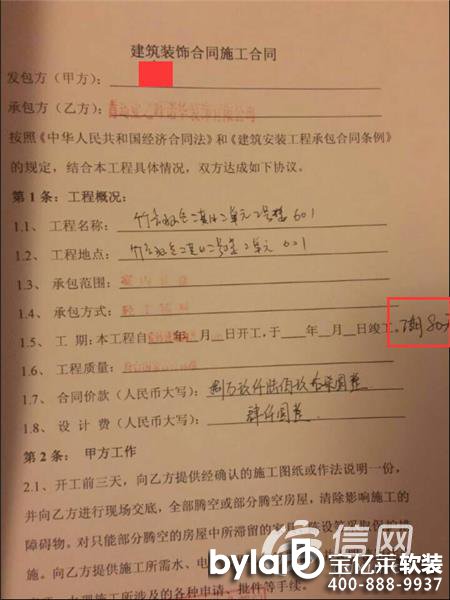 建筑装饰合同施工合同
发包方（甲方）：
承包方（乙方）：
按照《中华人民共和国经济合同法》和《建筑安装工程承包合同条例》
的规定，结合本工程具体情况，双方达成如下协议。
第 1 条：工程概况：
1.1、 工程名称： 601
1.2、 工程地点： 601
1.3、 承包范围：
1.4、 承包方式：
1.5、 工 期：本工程自 年 月 日开工，于 年 月 日竣工。
1.6、 工程质量：
1.7、 合同价款（人民币大写）：
1.8、 设 计 费（人民币大写）： 肆仟圆整
第 2 条： 甲方工作
2.1、开工前三天，向乙方提供经确认的施工图纸或作法说明一份，
并向乙方进行现场交底，全部腾空或部分腾空房屋，清除影响施工的
障碍物。对只能部分腾空的房屋中所滞留的家具、陈设等采取保护措
施。向乙方提供施工所需水、电
施工所涉及的各种申请、批件等手续。
信网
bylai 宝亿莱软装
400-888-9937